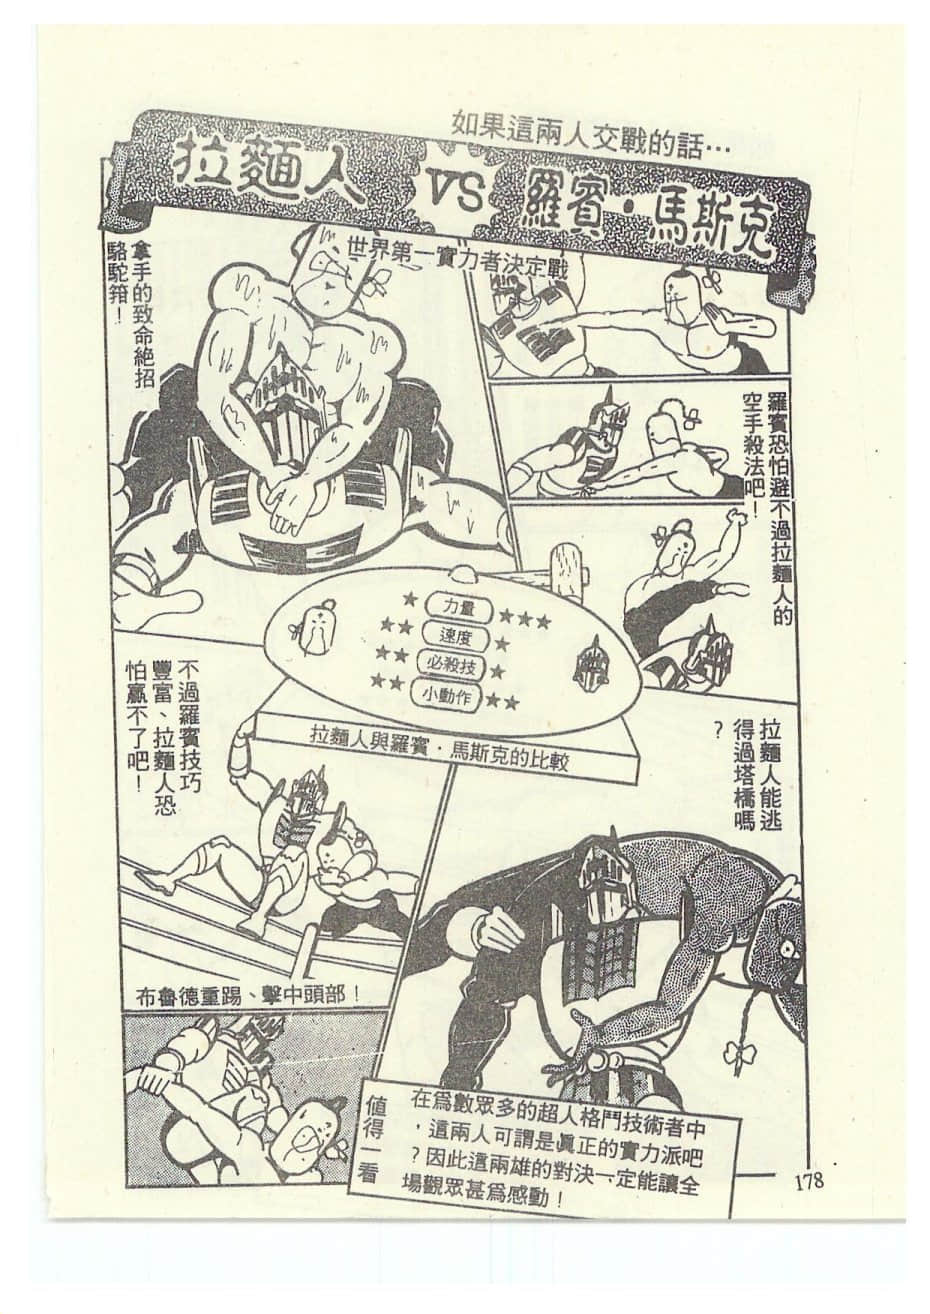 如果這兩人交戰的話…
拉麵人 VS 羅賓・馬斯克
世界第一實力者決定戰
拿手的致命絕招
駱駝箝！
羅賓恐怕避不過拉麵人的
空手殺法吧！
★ 力量 ★★★
★★ 速度 ★
★★ 必殺技 ★
★★ 小動作 ★★
拉麵人與羅賓・馬斯克的比較
不過羅賓技巧
豐富、拉麵人恐
怕贏不了吧！
拉麵人能逃
得過塔橋嗎
？
布魯德重踢、擊中頭部！
值得一看
在爲數眾多的超人格鬥技術者中
，這兩人可謂是眞正的實力派吧
？因此這兩雄的對決一定能讓全
場觀眾甚爲感動！
178